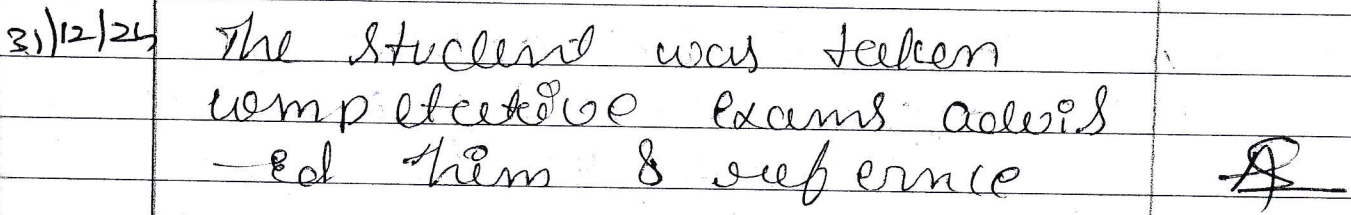 31/12/24 The student was taken
competetive exams advis
-ed them & refernce